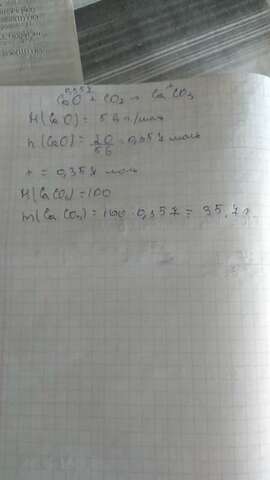 0,357
CaO + CO₂ → CaCO₃
M(CaO) = 56 г/моль
n(CaO) = 20/56 = 0,357 моль
x = 0,357 моль
M(CaCO₃) = 100
m(CaCO₃) = 100 · 0,357 = 35,7 г.